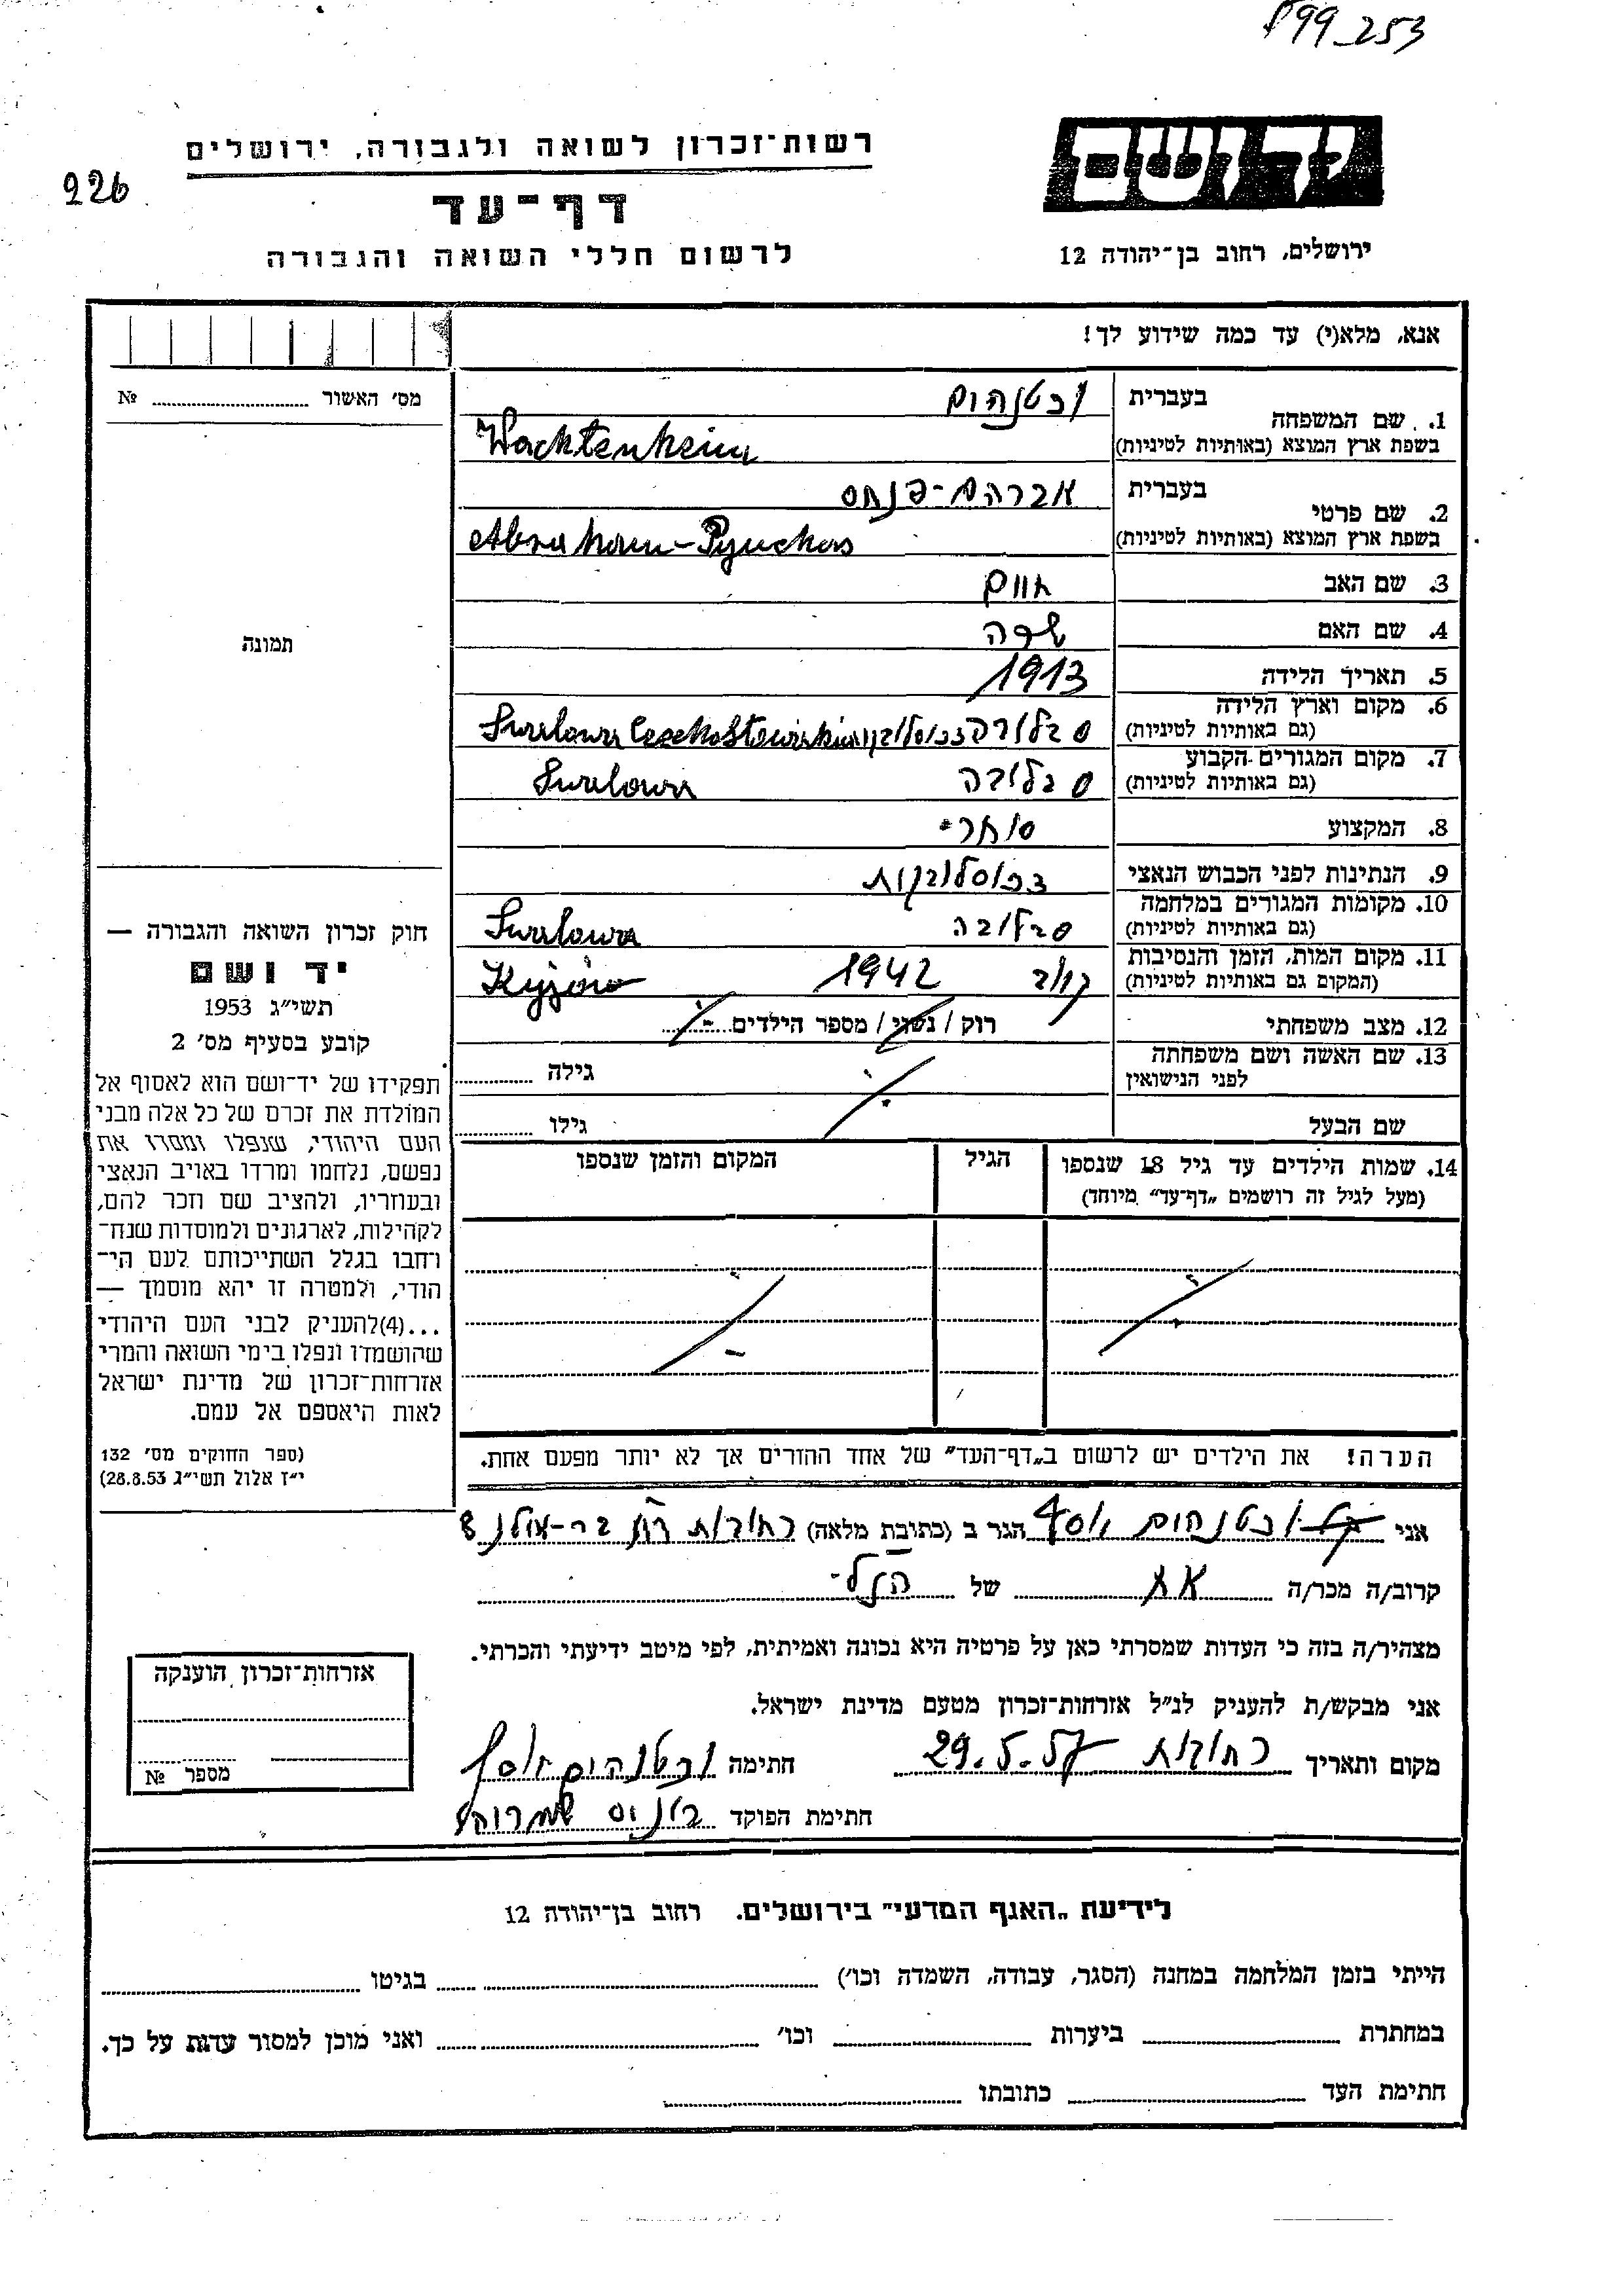 P99_253
יד ושם
רשות־זכרון לשואה ולגבורה, ירושלים
226
דף־עד
לרשום חללי השואה והגבורה
ירושלים, רחוב בן־יהודה 12
אנא, מלא(י) עד כמה שידוע לך!
מס׳ האשור № ........
1. שם המשפחה בעברית וכטנהים
בשפת ארץ המוצא (באותיות לטיניות) Wachtenheim
2. שם פרטי בעברית אברהם-פנחס
בשפת ארץ המוצא (באותיות לטיניות) Abraham-Pynchas
3. שם האב חיים
4. שם האם שרה
5. תאריך הלידה 1913
6. מקום וארץ הלידה
(גם באותיות לטיניות)
7. מקום המגורים הקבוע
(גם באותיות לטיניות)
8. המקצוע סוחר
9. הנתינות לפני הכבוש הנאצי
10. מקומות המגורים במלחמה
(גם באותיות לטיניות)
11. מקום המות, הזמן והנסיבות
(המקום גם באותיות לטיניות) 1942
12. מצב משפחתי רוק / נשוי / מספר הילדים
13. שם האשה ושם משפחתה
לפני הנישואין גילה ........
שם הבעל גילו ........
14. שמות הילדים עד גיל 18 שנספו
(מעל לגיל זה רושמים „דף־עד״ מיוחד)
הגיל
המקום והזמן שנספו
הערה! את הילדים יש לרשום ב„דף־העד״ של אחד ההורים אך לא יותר מפעם אחת.
תמונה
חוק זכרון השואה והגבורה —
יד ושם
תשי״ג 1953
קובע בסעיף מס׳ 2
תפקידו של יד־ושם הוא לאסוף אל
המולדת את זכרם של כל אלה מבני
העם היהודי, שנפלו ומסרו את
נפשם, נלחמו ומרדו באויב הנאצי
ובעוזריו, ולהציב שם וזכר להם,
לקהילות, לארגונים ולמוסדות שנח־
רחבו בגלל השתייכותם לעם הי־
הודי, ולמטרה זו יהא מוסמך —
...(4)להעניק לבני העם היהודי
שהושמדו ונפלו בימי השואה והמרי
אזרחות־זכרון של מדינת ישראל
לאות היאספם אל עמם.
(ספר החוקים מס׳ 132
י״ז אלול תשי״ג 28.8.53)
אני וכטנהים יוסף הגר ב (כתובת מלאה) רחובות
קרוב/ה מכר/ה אח של הנ״ל
מצהיר/ה בזה כי העדות שמסרתי כאן על פרטיה היא נכונה ואמיתית, לפי מיטב ידיעתי והכרתי.
אני מבקש/ת להעניק לנ״ל אזרחות־זכרון מטעם מדינת ישראל.
מקום ותאריך רחובות 29.5.57 חתימה וכטנהים יוסף
חתימת הפוקד
אזרחות־זכרון הוענקה
מספר №
לידיעת „האגף המדעי״ בירושלים. רחוב בן־יהודה 12
הייתי בזמן המלחמה במחנה (הסגר, עבודה, השמדה וכו׳) ........ בגיטו ........
במחתרת ........ ביערות ........ וכו׳ ........ ואני מוכן למסור עדות על כך.
חתימת העד ........ כתובתו ........